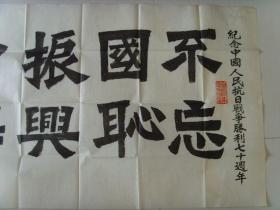 紀念中國人民抗日戰爭勝利七十週年
不忘
國恥
振興